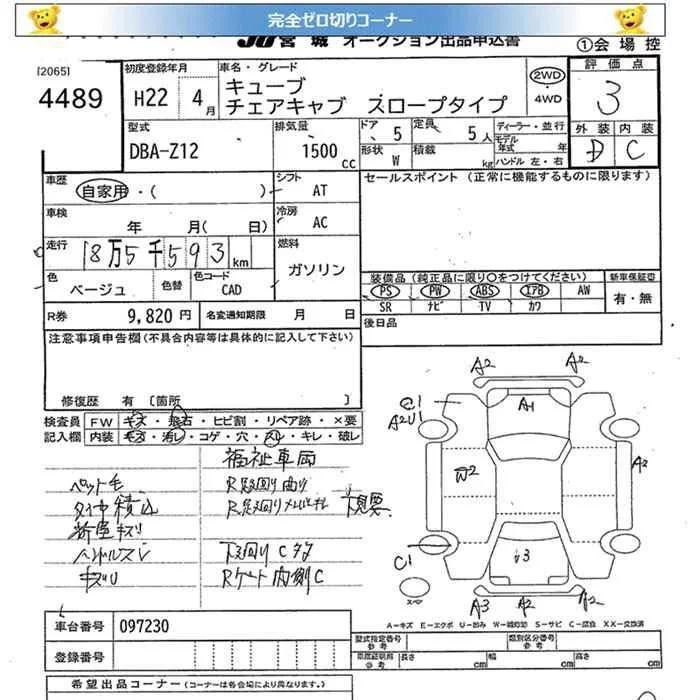 完全ゼロ切りコーナー
JU宮城 オークション出品申込書
①会場控
[2065]
4489
初度登録年月
H22 4月
車名・グレード
キューブ
チェアキャブ スロープタイプ
2WD
・4WD
評価点
3
型式
DBA-Z12
排気量
1500 cc
ドア 5
定員 5人
形状 W
積載 kg
ディーラー・並行
モデル年式 年
ハンドル 左・右
外装 内装
D C
車歴
自家用・( )
シフト AT
セールスポイント(正常に機能するものに限ります)
車検
年 月( 日)
冷房 AC
走行
18万5千593km
燃料
ガソリン
色
ベージュ
色替
色コード
CAD
装備品(純正品に限り〇をつけてください)
新車保証書
PS PW ABS エアB AW
SR ナビ TV カワ
有・無
R券 9,820円
名変通知期限 月 日
後日品
注意事項申告欄(不具合内容等は具体的に記入して下さい)
修復歴 有 [箇所 ]
検査員記入欄
FW キズ・飛石・ヒビ割・リペア跡・×要
内装 キズ・汚レ・コゲ・穴・スレ・キレ・破レ
福祉車両
ペット毛
R足回り曲り
タイヤ積込
R足回り
下見要
ハンドルスレ
下回りCタタ
キズU
Rゲート内側C
A2 A2
A1
A2U1
W2
A2
C1
A3 A2
スペア
A=キズ E=エクボ U=凹み W=補修跡 S=サビ C=腐食 XX=交換済
車台番号 097230
登録番号
型式指定番号 参考
類別区分番号 参考
車庫証明用 参考 長さ cm 幅 cm 高さ cm
希望出品コーナー(コーナーは各会場により異なります。)